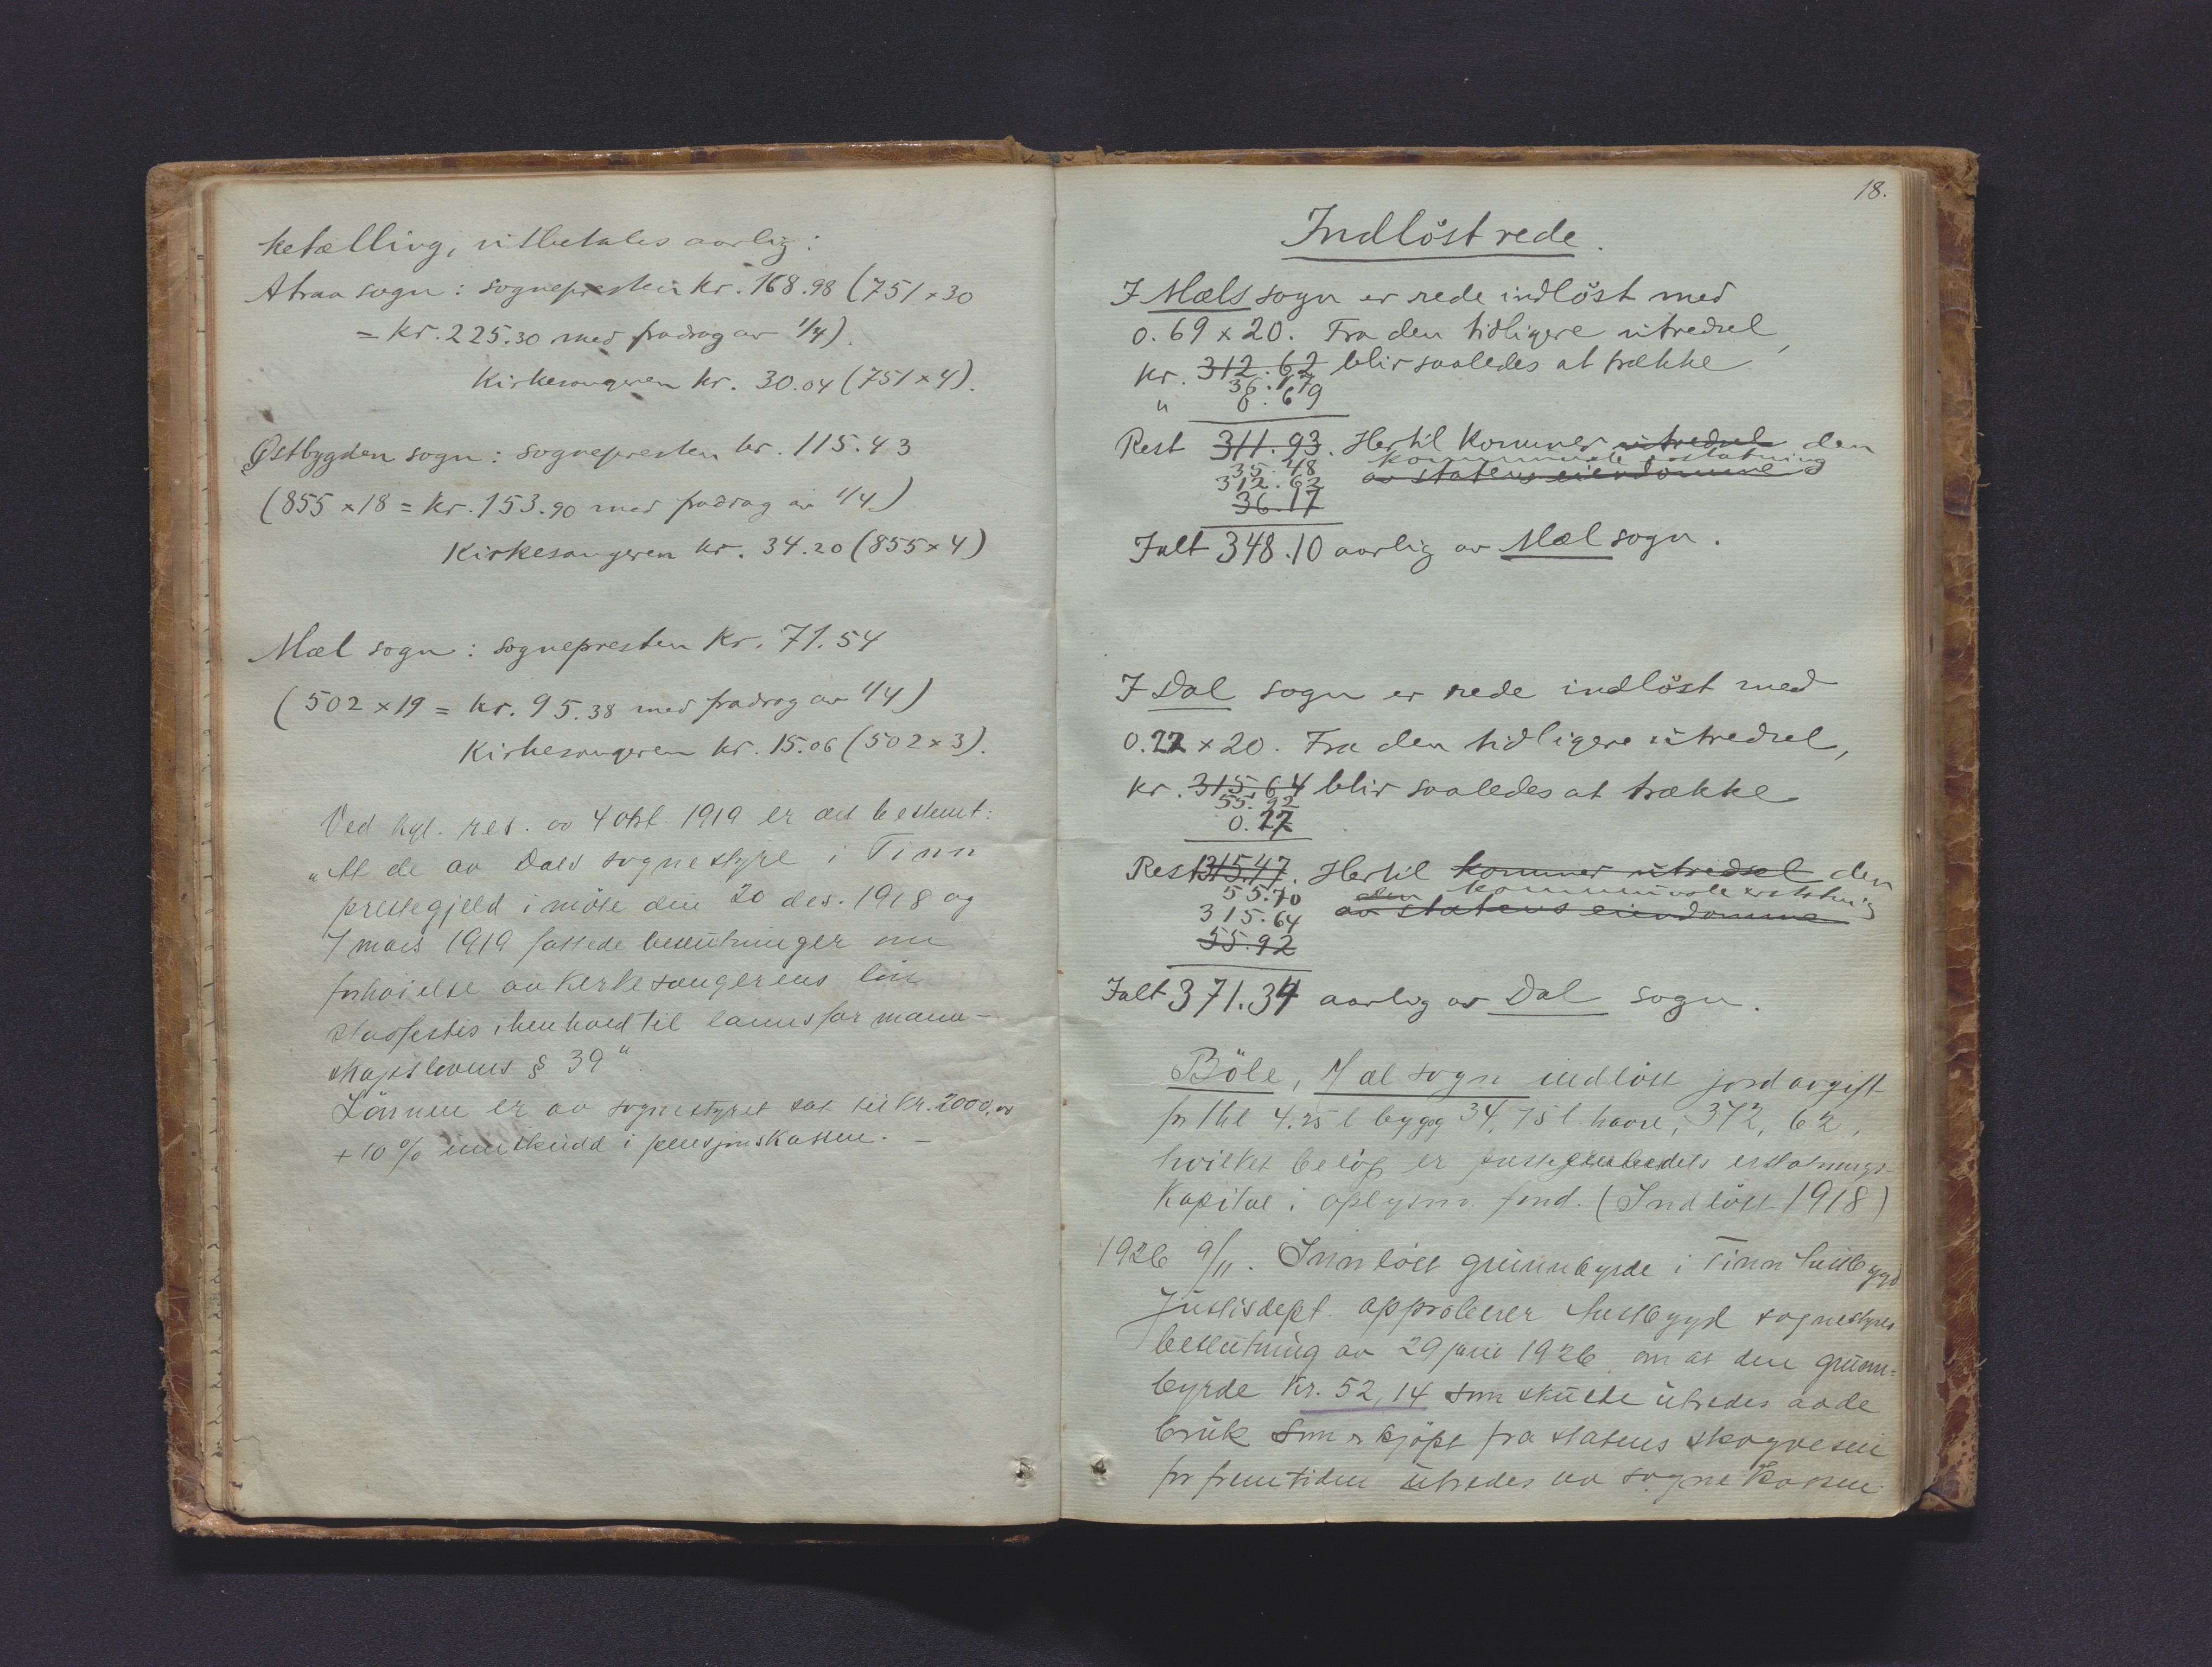 ketælling, utbetales aarlig:
Atraa sogn: sognepresten kr. 168.98 (751 x 30
= kr. 225.30 med fradrag av 1/4).
Kirkesangeren kr. 30.04 (751 x 4).
Østbygden sogn: sognepresten kr. 115.43
(855 x 18 = kr. 153.90 med fradrag av 1/4)
Kirkesangeren kr. 34.20 (855 x 4)
Mæl sogn: sognepresten kr. 71.54
(502 x 19 = kr. 95.38 med fradrag av 1/4)
Kirkesangeren kr. 15.06 (502 x 3).
Ved kgl. res. av 4 okt 1919 er det bestemt:
"At de av Dals sognestyre i Tinn
prestegjeld i møte den 20 des. 1918 og
7 mars 1919 fattede beslutninger om
forhøielse av kirkesangerens løn
stadfestes i henhold til lannsformann-
skapslovens § 39".
Lønnen er av sognestyret sat til kr. 2000,00
+ 10 % innskudd i pensjonskassen. –
18.
Indløst rede.
I Mæls sogn er rede indløst med
0.69 x 20. Fra den tidligere utredsel,
kr. 312.62 blir saaledes at trække
36.17
" 0.69
Rest 311.93. Hertil kommer utredsel den
kommunale erstatning
35.48 av statens eiendomme
312.62
36.17
Ialt 348.10 aarlig av Mæl sogn.
I Dal sogn er rede indløst med
0.22 x 20. Fra den tidligere utredsel,
kr. 315.64 blir saaledes at trække
55.92
0.22
Rest 315.47. Hertil kommer utredsel den
den kommunale erstatning
55.70 av statens eiendomme
315.64
55.92
Ialt 371.34 aarlig av Dal sogn.
Bøle, Mæl sogn indløst jordavgift
for 1 hl 4.25 l bygg 34,75 l havre, 372,62,
hvilket beløp er prestegjeldets erstatnings-
kapital i oplysn. fond. (Indløst 1918)
1926 9/11. Innløst grunnbyrde i Tinn Austbygd
Justisdept. approberer Austbygd sognestyres
beslutning av 29 juni 1926 om at den grunn-
byrde kr. 52,14 som skulde utredes av de
bruk som er kjøpt fra statens skogvesen
for fremtiden utredes av sognekassen